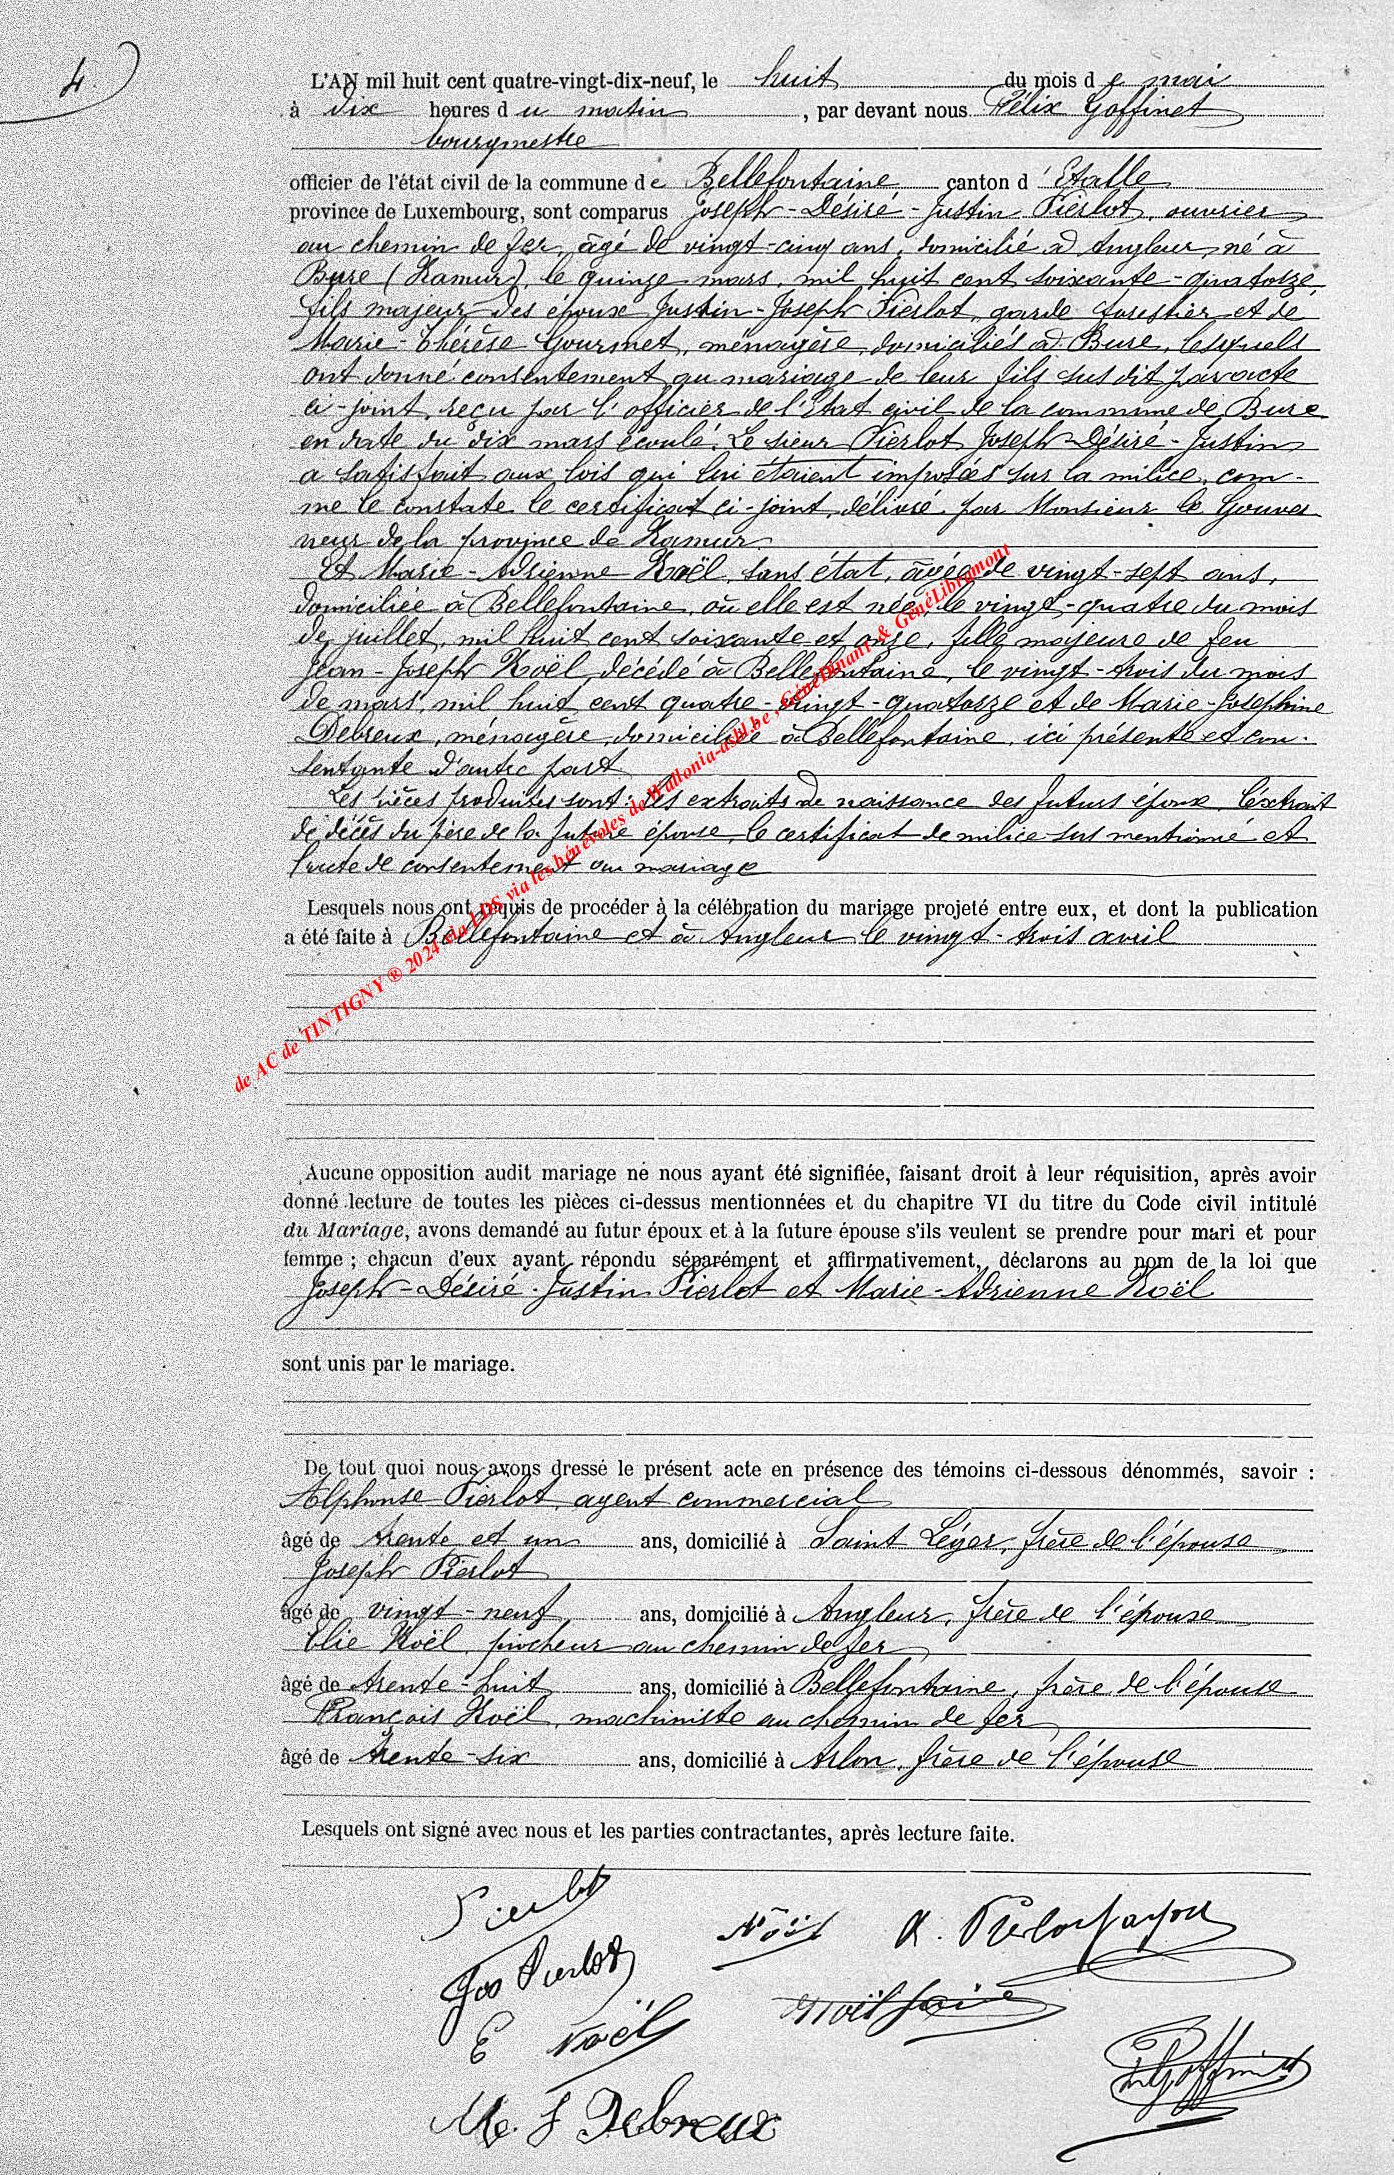 4.
L'AN mil huit cent quatre-vingt-dix-neuf, le huit du mois de mai
à dix heures du matin, par devant nous Félix Goffinet
bourgmestre
officier de l'état civil de la commune de Bellefontaine, canton d'Etalle
province de Luxembourg, sont comparus Joseph-Désiré-Justin Pierlot, ouvrier
au chemin de fer, âgé de vingt-cinq ans, domicilié à Angleur, né à
Bure (Namur), le quinze mars, mil huit cent soixante-quatorze,
fils majeur des époux Justin-Joseph Pierlot, garde forestier et de
Marie-Thérèse Gourmet, ménagère, domiciliés à Bure, lesquels
ont donné consentement au mariage de leur fils sus dit par acte
ci-joint, reçu par l'officier de l'Etat civil de la commune de Bure
en date du dix mars écoulé. Le sieur Pierlot Joseph-Désiré-Justin
a satisfait aux lois qui lui étaient imposées sur la milice, com-
me le constate le certificat ci-joint, délivré par Monsieur le Gouver
neur de la province de Namur.
Et Marie-Adrienne Noël, sans état, âgée de vingt-sept ans,
domiciliée à Bellefontaine, où elle est née, le vingt-quatre du mois
de juillet, mil huit cent soixante et onze, fille majeure de feu
Jean-Joseph Noël, décédé à Bellefontaine, le vingt-trois du mois
de mars, mil huit cent quatre-vingt-quatorze et de Marie-Josephine
Debreux, ménagère, domiciliée à Bellefontaine, ici présente et con-
sentante d'autre part
Les pièces produites sont: les extraits de naissance des futurs époux, l'extrait
de décès du père de la future épouse, le certificat de milice sus mentionné et
l'acte de consentement au mariage
Lesquels nous ont requis de procéder à la célébration du mariage projeté entre eux, et dont la publication
a été faite à Bellefontaine et à Angleur le vingt-trois avril
de AC de TINTIGNY ® 2024 via LDS via les bénévoles de Wallonia-asbl.be, GénéDinant & GénéLibramont
Aucune opposition audit mariage ne nous ayant été signifiée, faisant droit à leur réquisition, après avoir
donné lecture de toutes les pièces ci-dessus mentionnées et du chapitre VI du titre du Code civil intitulé
du Mariage, avons demandé au futur époux et à la future épouse s'ils veulent se prendre pour mari et pour
femme ; chacun d'eux ayant répondu séparément et affirmativement, déclarons au nom de la loi que
Joseph-Désiré-Justin Pierlot et Marie-Adrienne Noël
sont unis par le mariage.
De tout quoi nous avons dressé le présent acte en présence des témoins ci-dessous dénommés, savoir :
Alphonse Pierlot, agent commercial
âgé de trente et un ans, domicilié à Saint Léger, frère de l'épouse
Joseph Pierlot
âgé de vingt-neuf ans, domicilié à Angleur, frère de l'épouse
Elie Noël, piocheur au chemin de fer
âgé de trente-huit ans, domicilié à Bellefontaine, frère de l'épouse
François Noël, machiniste au chemin de fer
âgé de trente-six ans, domicilié à Arlon, frère de l'épouse
Lesquels ont signé avec nous et les parties contractantes, après lecture faite.
Pierlot
Noël A.
Jos Pierlot
E Noël
Goffinet
M. J Debreux